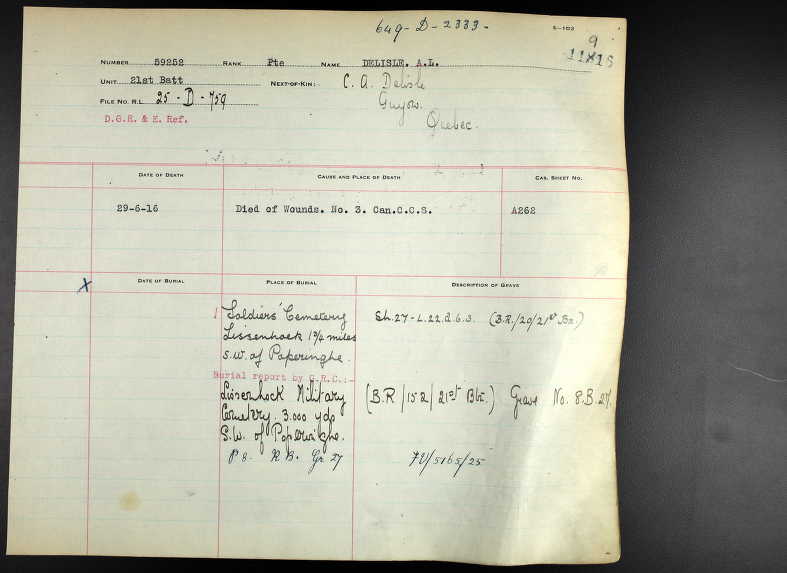 649-D-2333-
S-103
9
11X18
NUMBER 59252 RANK Pte NAME DELISLE. A.L.
UNIT 21st Batt NEXT-OF-KIN: C. A. Delisle
FILE NO. R.L. 25-D-759 Guyon.
D.G.R. & E. Ref. Quebec.
DATE OF DEATH CAUSE AND PLACE OF DEATH CAS. SHEET NO.
29-6-16 Died of Wounds. No. 3. Can.C.C.S. A262
X DATE OF BURIAL PLACE OF BURIAL DESCRIPTION OF GRAVE
Soldiers' Cemetery Sh.27-L.22.d.6.3. (B.R./20/21st Bn.)
Lissenhoek 1¾ miles
S.W. of Poperinghe.
Burial report by G.R.C.:-
Lissenhock Military (B.R/152/21st Btt.) Grave No. 8.B.27.
Cemetery. 3.000 yds
S.W. of Poperinghe.
P 8. R B. Gr 27 FV/5165/25